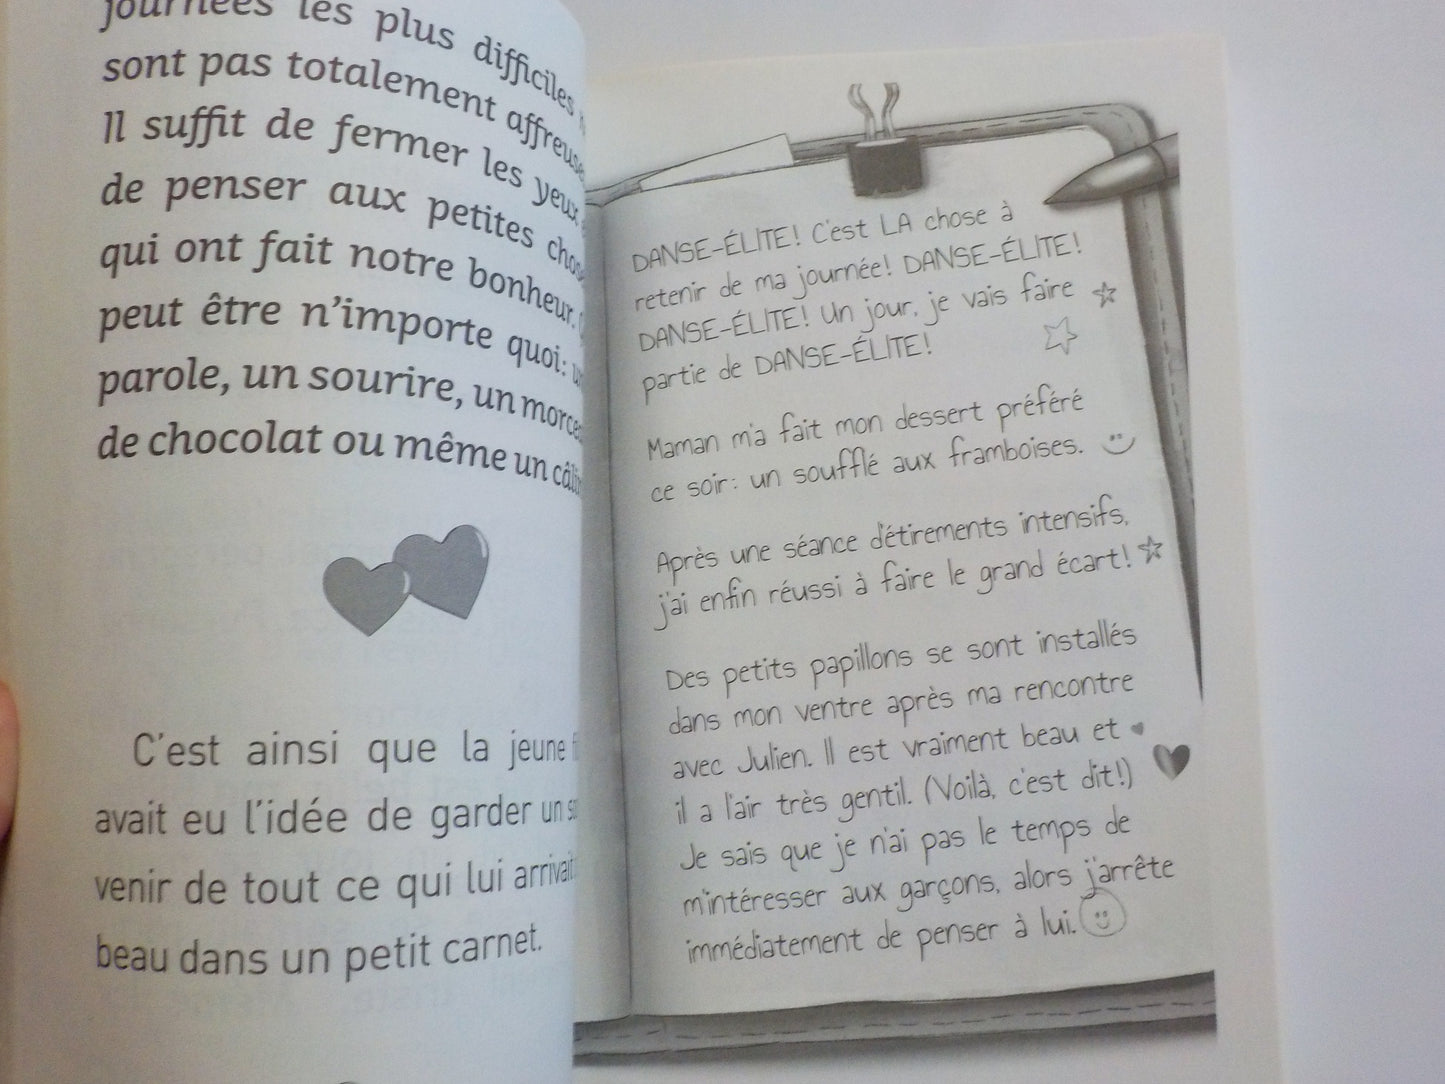 journées les plus difficiles
sont pas totalement
Il suffit de fermer les yeux
de penser aux petites
qui ont fait notre bonheur.
peut être n'importe quoi:
parole, un sourire, un
de chocolat ou même un
C'est ainsi que la jeune
avait eu l'idée de garder un
venir de tout ce qui lui arrivait
beau dans un petit carnet.
DANSE-ÉLITE! C'est LA chose à
retenir de ma journée! DANSE-ÉLITE!
DANSE-ÉLITE! Un jour, je vais faire
partie de DANSE-ÉLITE!
Maman m'a fait mon dessert préféré
ce soir: un soufflé aux framboises.
Après une séance d'étirements intensifs,
j'ai enfin réussi à faire le grand écart!
Des petits papillons se sont installés
dans mon ventre après ma rencontre
avec Julien. Il est vraiment beau et
il a l'air très gentil. (Voilà, c'est dit!)
Je sais que je n'ai pas le temps de
m'intéresser aux garçons, alors j'arrête
immédiatement de penser à lui.